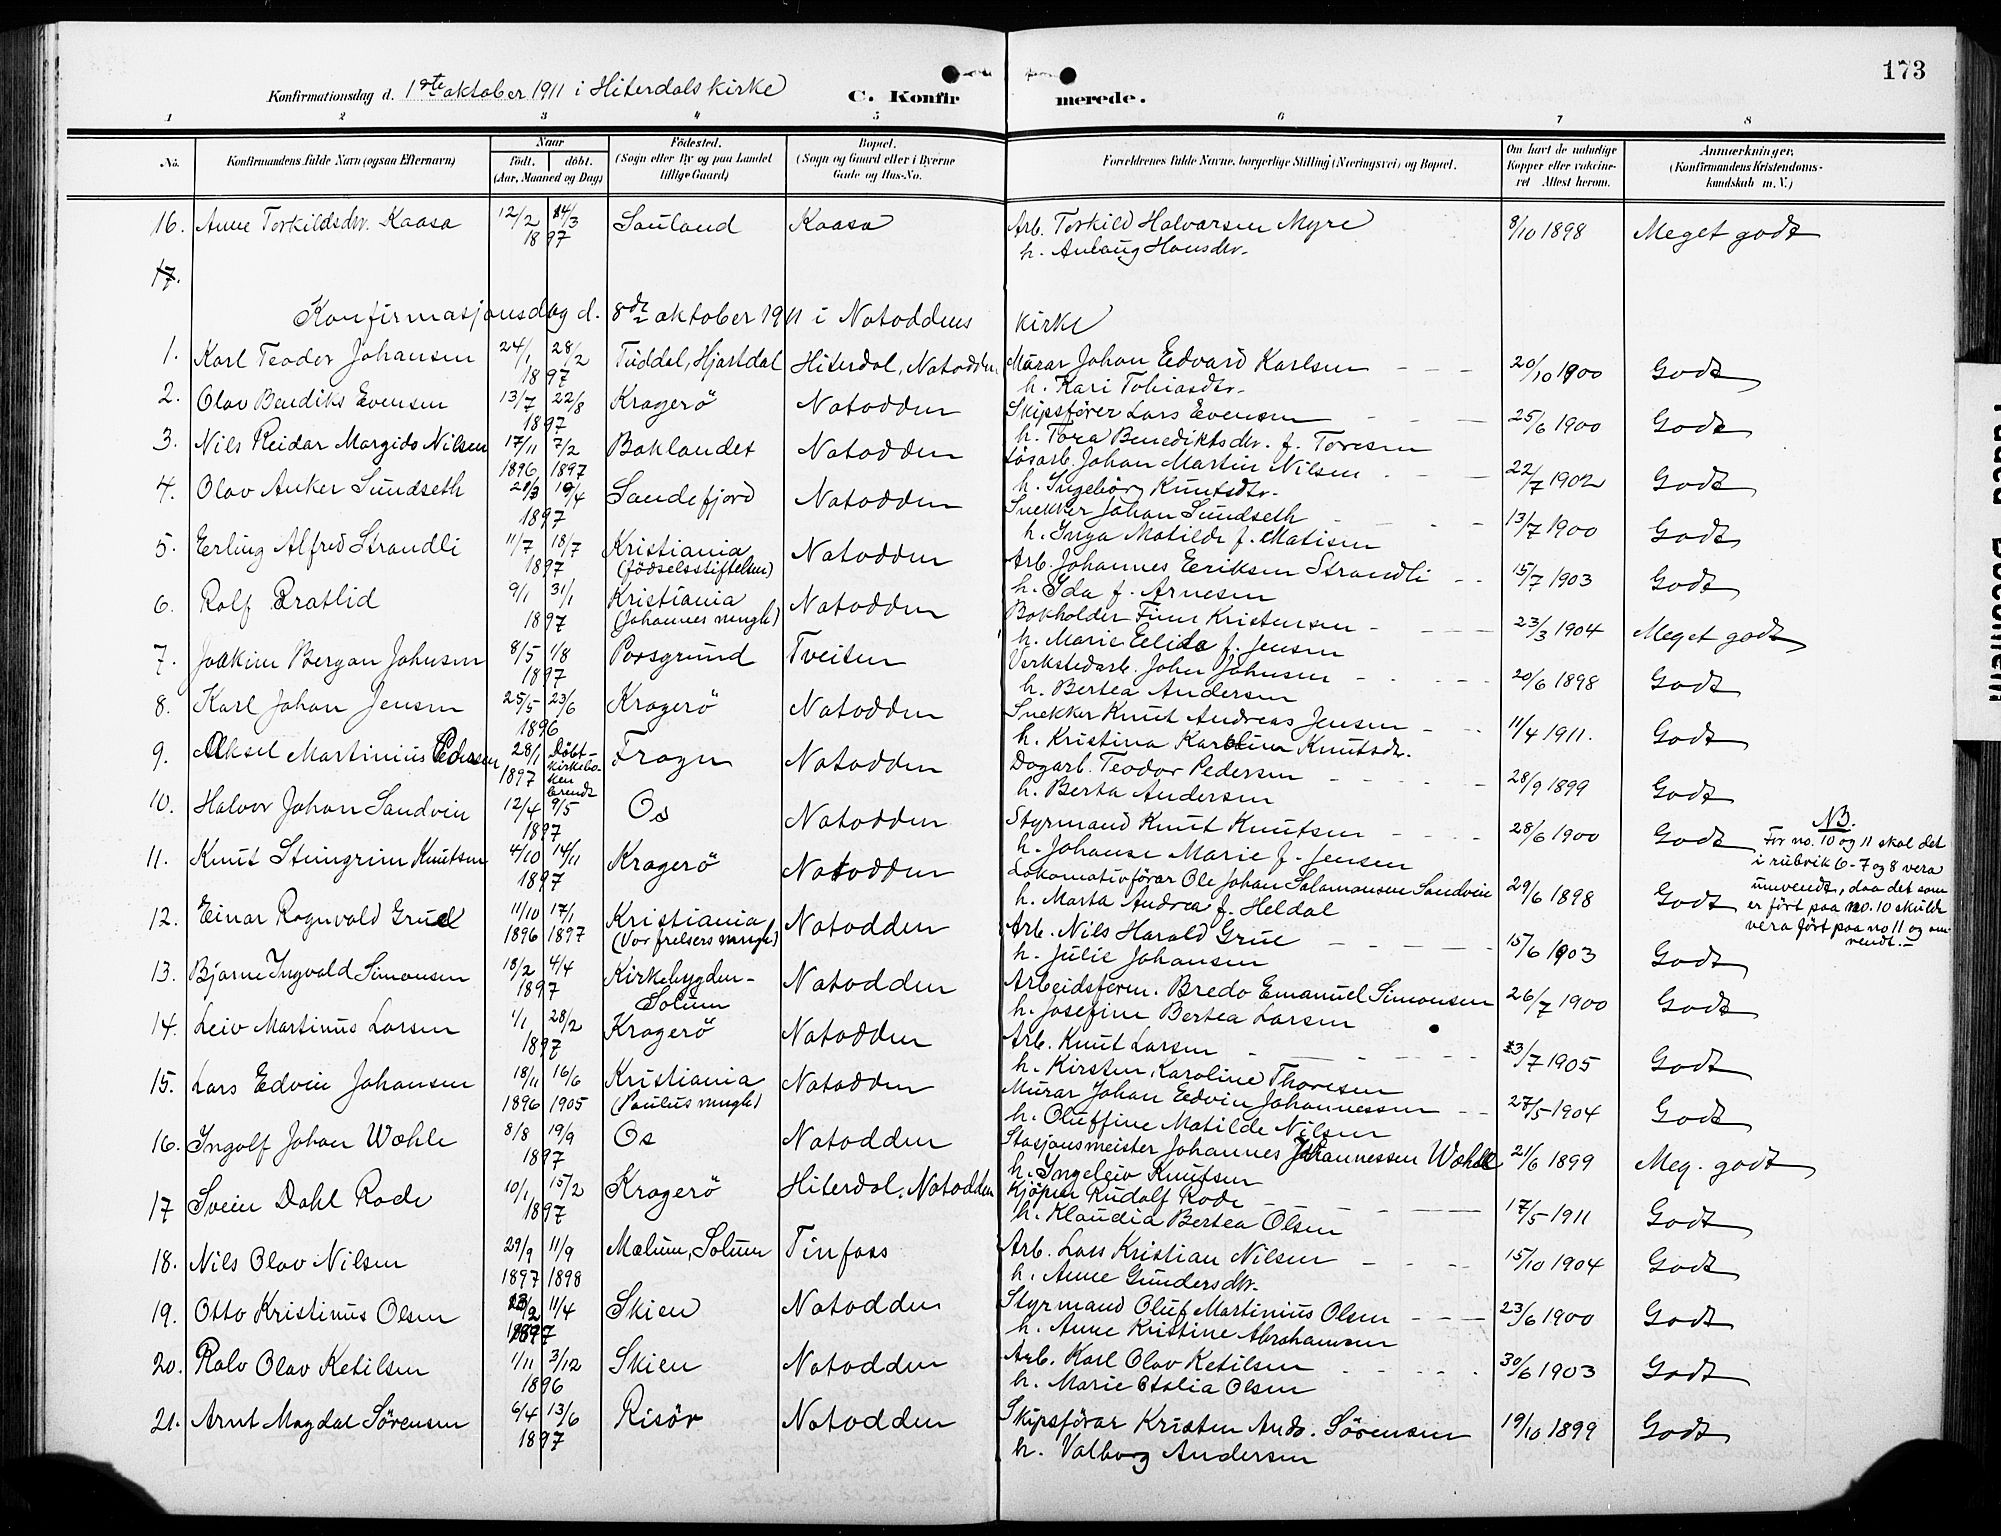 173
Konfirmationsdag d. 1ste oktober 1911 i Hiterdals kirke
C. Konfirmerede.
1 2 3 4 5 6 7 8
No. Konfirmandens fulde Navn (ogsaa Efternavn) Naar født. døbt. (Aar, Maaned og Dag) Fødested. (Sogn eller By og paa Landet tillige Gaard) Bopæl. (Sogn og Gaard eller i Byerne Gade og Hus-No. Forældrenes fulde Navne, borgerlige Stilling (Næringsvei) og Bopæl. Om havt de naturlige Kopper eller vaccineret Attest herom. Anmærkninger. (Konfirmandens Kristendomskundskab m. V.)
16. Anne Torkildsdtr. Kaasa 12/2 14/3 1897 Sauland Kaasa Arb. Torkild Halvarsen Myre 8/10 1898 Meget godt
h. Anlaug Hansdtr.
17.
Konfirmasjonsdag d. 8de oktober 1911 i Notoddens kirke
1. Karl Teodor Johansen 24/1 28/2 1897 Tuddal, Hjartdal Hiterdal, Notodden Murar Johan Edvard Karlsen 20/10 1900 Godt
h. Kari Tobiasdtr.
2. Olav Bendiks Evensen 13/7 22/8 1897 Kragerö Notodden Skipsförer Lars Evensen 25/6 1900 Godt
h. Tora Benediktsdtr. f. Toresen
3. Nils Reidar Margido Nilsen 17/11 1896 7/2 1897 Baklandet Notodden Løsarb. Johan Martin Nilsen 22/7 1902 Godt
h. Ingebörg Knutsdtr.
4. Olav Anker Sundseth 21/3 19/4 1897 Sandefjord Notodden Snekker Johan Sundseth 13/7 1900 Godt
h. Inga Matilde f. Matisen
5. Erling Alfred Strandli 11/7 18/7 1897 Kristiania (födselsstiftelsen) Notodden Arb. Johannes Eriksen Strandli 15/7 1903 Godt
h. Ida f. Arnesen
6. Rolf Bratlid 9/1 31/1 1897 Kristiania (Johannes mngh.) Notodden Bokholder Finn Kristensen 23/3 1904 Meget godt
h. Marie Elida f. Jensen
7. Joakim Bergan Johnsen 8/5 1/8 1897 Porsgrund Tveiten Verkstedarb. John Johnsen 20/6 1898 Godt
h. Bertea Andersen
8. Karl Johan Jensen 25/5 23/6 1896 Kragerö Notodden Snekker Knut Andreas Jensen 11/4 1911. Godt
h. Kristina Karoline Knutsdr.
9. Aksel Martinius Pedersen 28/1 1897 Döbt - kirkeboken brendt Frogn Notodden Dagarb. Teodor Pedersen 28/9 1899 Godt
h. Berta Andersen
10. Halvor Johan Sandvin 12/4 9/5 1897 Os Notodden Styrmand Knut Knutsen 28/6 1900 Godt
h. Johanse Marie f. Jensen
NB.
For no. 10 og 11 skal det
i rubrik 6-7 og 8 vera
umvendt, daa det som
er fört paa no. 10 skulde
vera fört paa no 11 og omvendt.-
11. Knut Steingrim Knutsen 4/10 14/11 1897 Kragerö Notodden Lokomotivförar Ole Johan Salamonsen Sandvin 29/6 1898 Godt
h. Marta Andrea f. Heldal
12. Einar Ragnvald Grue 11/10 1896 17/1 1897 Kristiania (Vor frelsers mngh.) Notodden Arb. Nils Harald Grue 15/6 1903 Godt
h. Julie Johansen
13. Bjarne Ingvald Simonsen 18/2 4/4 1897 Kirkebygden - Solum Notodden Arbeidsform. Bredo Emanuel Simonsen 26/7 1900 Godt
h. Josefine Bertea Larsen
14. Leiv Martinus Larsen 1/1 28/2 1897 Kragerö Notodden Arb. Knut Larsen 23/7 1905 Godt
h. Kirsten Karoline Thoresen
15. Lars Edvin Johansen 18/11 1896 16/6 1905 Kristiania (Paulus mngh.) Notodden Murar Johan Edvin Johannessen 27/5 1904 Godt
h. Oluffine Matilde Nilsen
16. Ingolf Johan Wæhle 8/8 19/9 1897 Os Notodden Stasjonsmeister Johannes Johannessen Wæhle 21/6 1899 Meg. godt
h. Ingeleiv Knutsen
17 Svein Dahl Rode 10/1 15/2 1897 Kragerö Hiterdal, Notodden Kjöpm Rudolf Rode 17/5 1911 Godt
h. Klaudia Bertea Olsen
18. Nils Olav Nilsen 29/9 1897 11/9 1898 Mælum, Solum Tinfoss Arb. Lars Kristian Nilsen 15/10 1904 Godt
h. Anne Gundersdtr.
19. Otto Kristinus Olsen 23/2 11/4 1897 Skien Notodden Styrmand Oluf Martinius Olsen 23/6 1900 Godt
h. Anne Kristine Abrahamsen
20. Ralv Olav Ketilsen 1/11 3/12 1896 Skien Notodden Arb. Karl Olav Ketilsen 30/6 1903 Godt
h. Marie Otolia Olsen
21. Arnt Magdal Sörensen 6/4 13/6 1897 Risör Notodden Skipsförar Kristen Andr. Sörensen 19/10 1899 Godt
h. Valborg Andersen